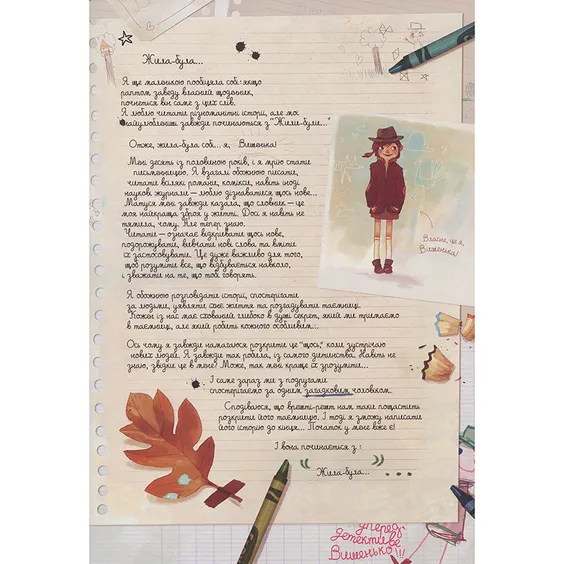 Жила-була...
Я ще маленькою пообіцяла собі: якщо
раптом заведу власний щоденник,
почнеться він саме з цих слів.
Я люблю читати різноманітні історії, але мої
найулюбленіші завжди починаються з "Жили-були..."
Отже, жила-була собі... я, Вишенька!
Мені десять із половиною років, і я мрію стати
письменницею. Я взагалі обожнюю писати,
читати всілякі романи, комікси, навіть іноді
наукові журнали — люблю дізнаватися щось нове...
Матуся мені завжди казала, що словник — це
моя найкраща зброя у житті. Досі я навіть не
тямила, чому. Але тепер знаю.
Читати — означає відкривати щось нове,
подорожувати, вивчати нові слова та вміти
їх застосовувати. Це дуже важливо для того,
щоб розуміти все, що відбувається навколо,
і зважати на те, що тобі говорять.
Власне, це я,
Вишенька!
Я обожнюю розповідати історії, спостерігати
за людьми, уявляти їхнє життя та розгадувати таємниці.
Кожен із нас має схований глибоко в душі секрет, який ми тримаємо
в таємниці, але який робить кожного особливим...
Ось чому я завжди намагаюся розкрити це "щось", коли зустрічаю
нових людей. Я завжди так робила, із самого дитинства. Навіть не
знаю, звідки це в мене? Може, так мені краще їх зрозуміти...
І саме зараз ми з подругами
спостерігаємо за одним загадковим чоловіком.
Сподіваюся, що врешті-решт нам таки пощастить
розкрити його таємницю. І тоді я зможу написати
його історію до кінця... Початок у мене вже є!
І вона починається з:
« Жила-була... »
уперед
детективе
Вишенько!!!